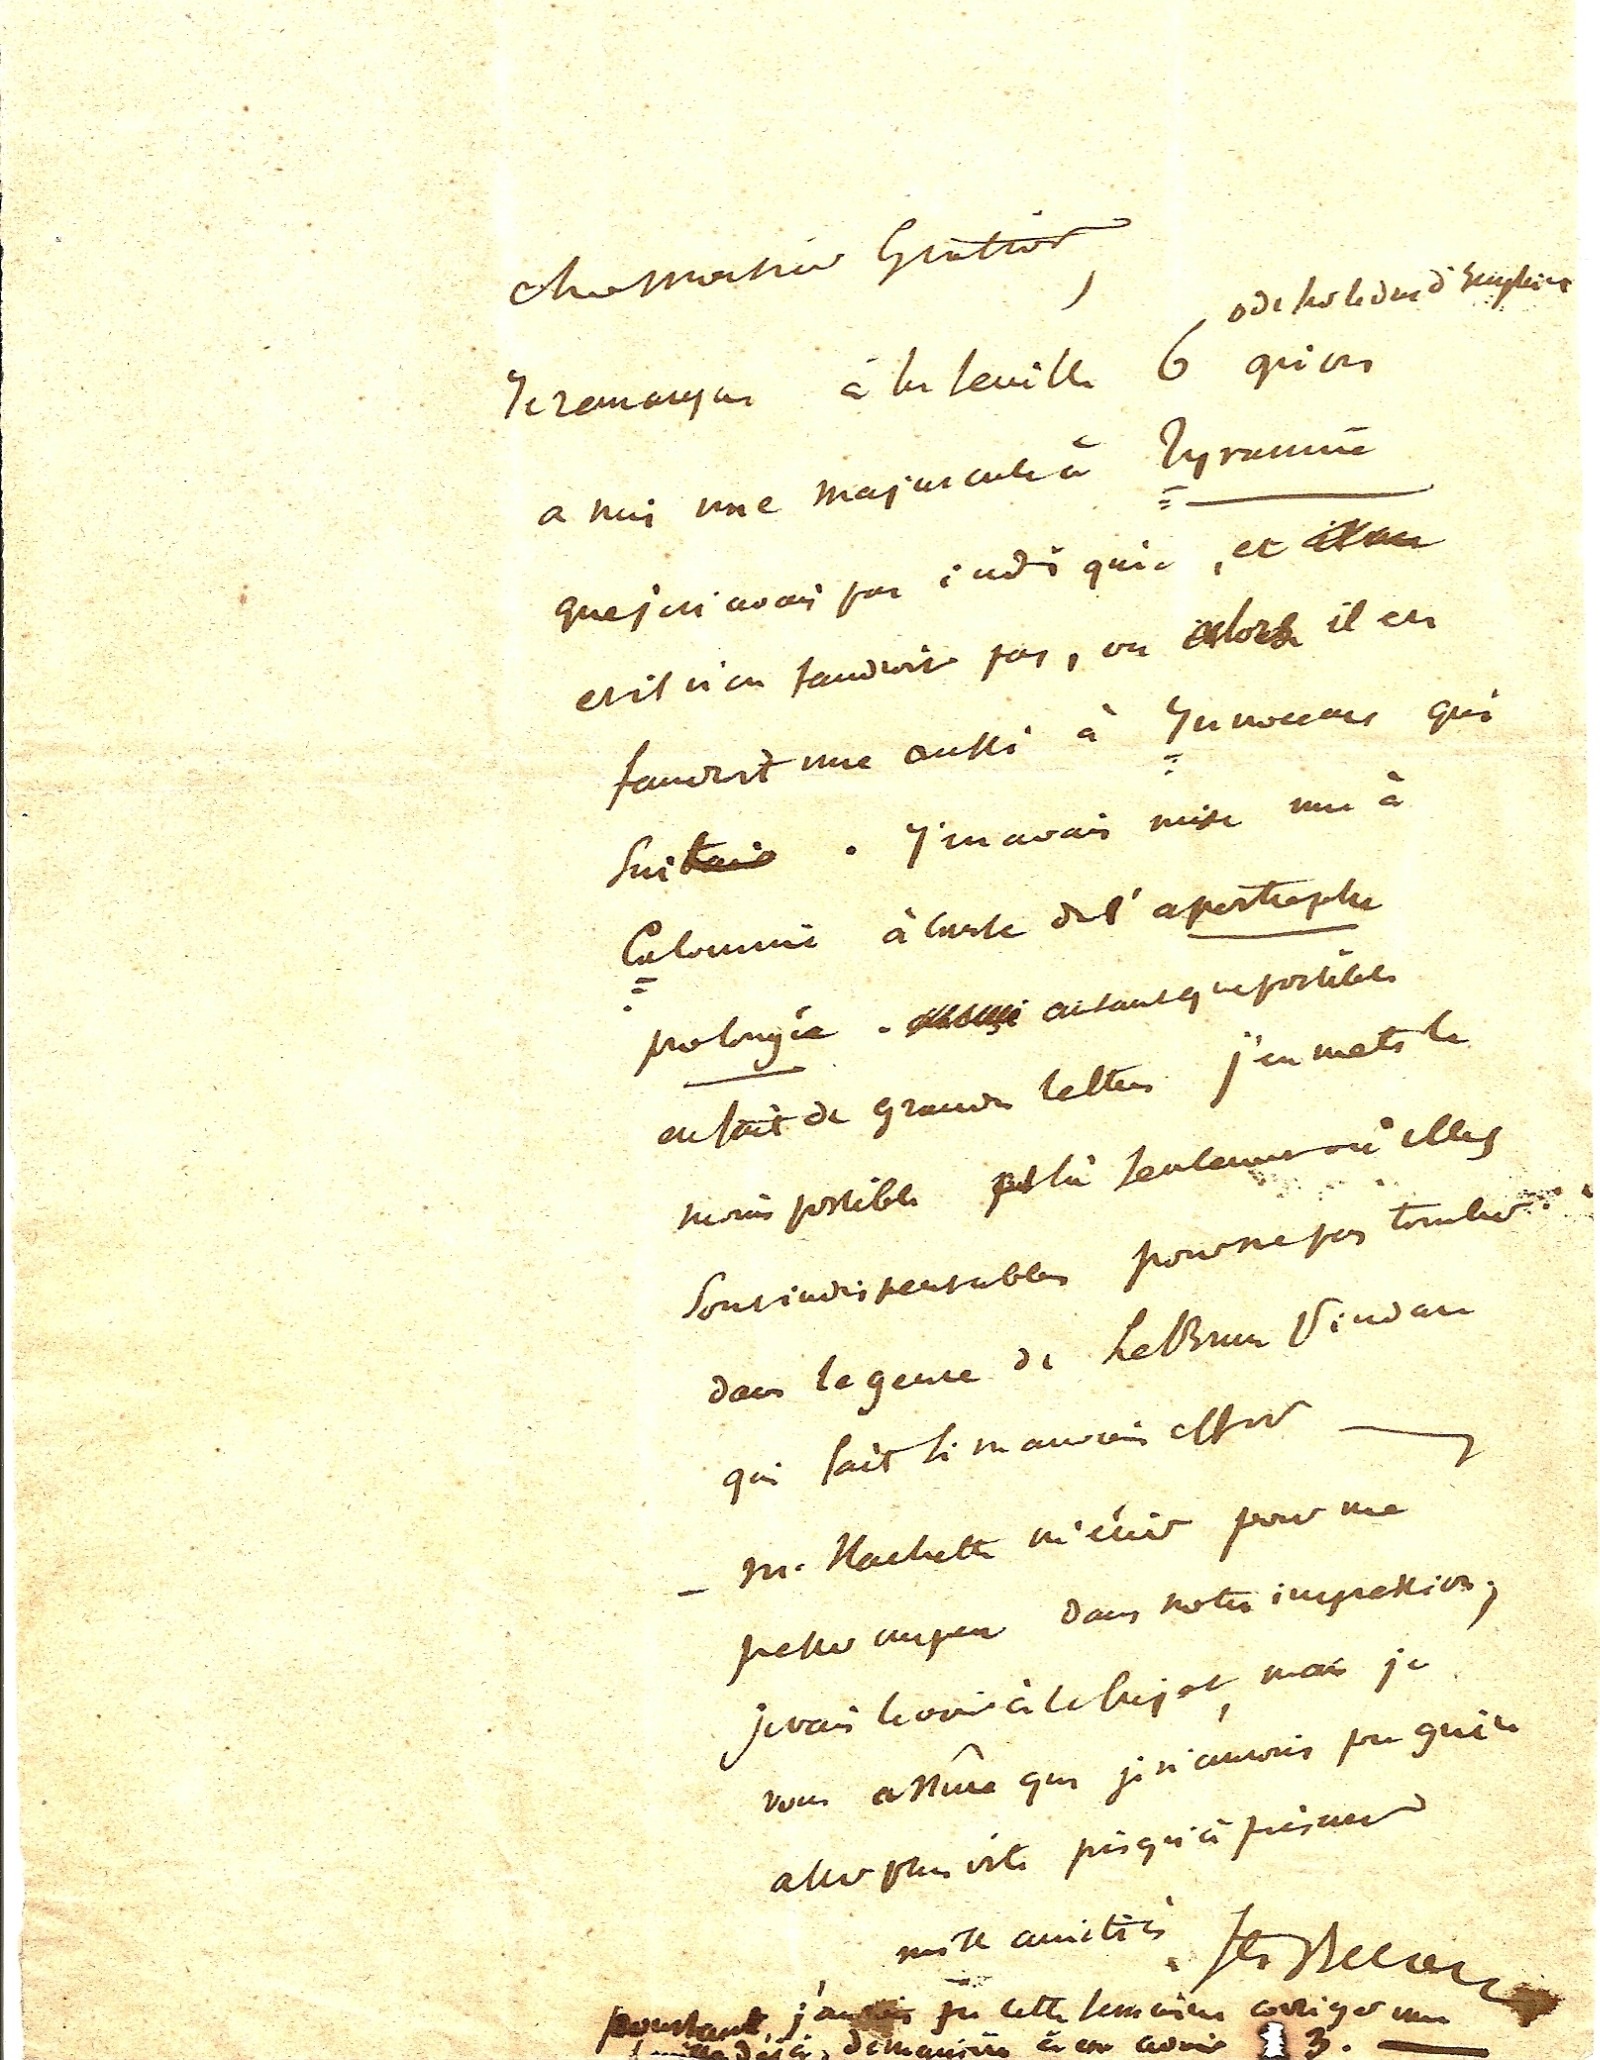 cher Monsieur Gratiot,
ode sur le duc d'Enghien
Je remarque à la feuille 6 qu'on
a mis une majuscule à Tyrannie
que je n'avais pas indiquée, et
et il n'en faudrait pas, ou alors il en
faudrait une aussi à Innocence qui
suit. J'en avais mise une à
Calomnie à cause de l'apostrophe
prolongée. autant que possible
en fait de grandes lettres j'en mets le
moins possible et là seulement où elles
sont indispensables pour ne pas tomber
dans le genre de LeBrun Pindare
qui fait si mauvais effet —
— Mr. Hachette m'écrit pour me
presser un peu dans notre impression;
je vais le voir à ce sujet, mais je
vous assure que je n'aurais pu guère
aller plus vite jusqu'à présent
mille amitiés.
pourtant, j'aurais pu cette semaine corriger une
feuille déjà, de manière à en avoir 3. —